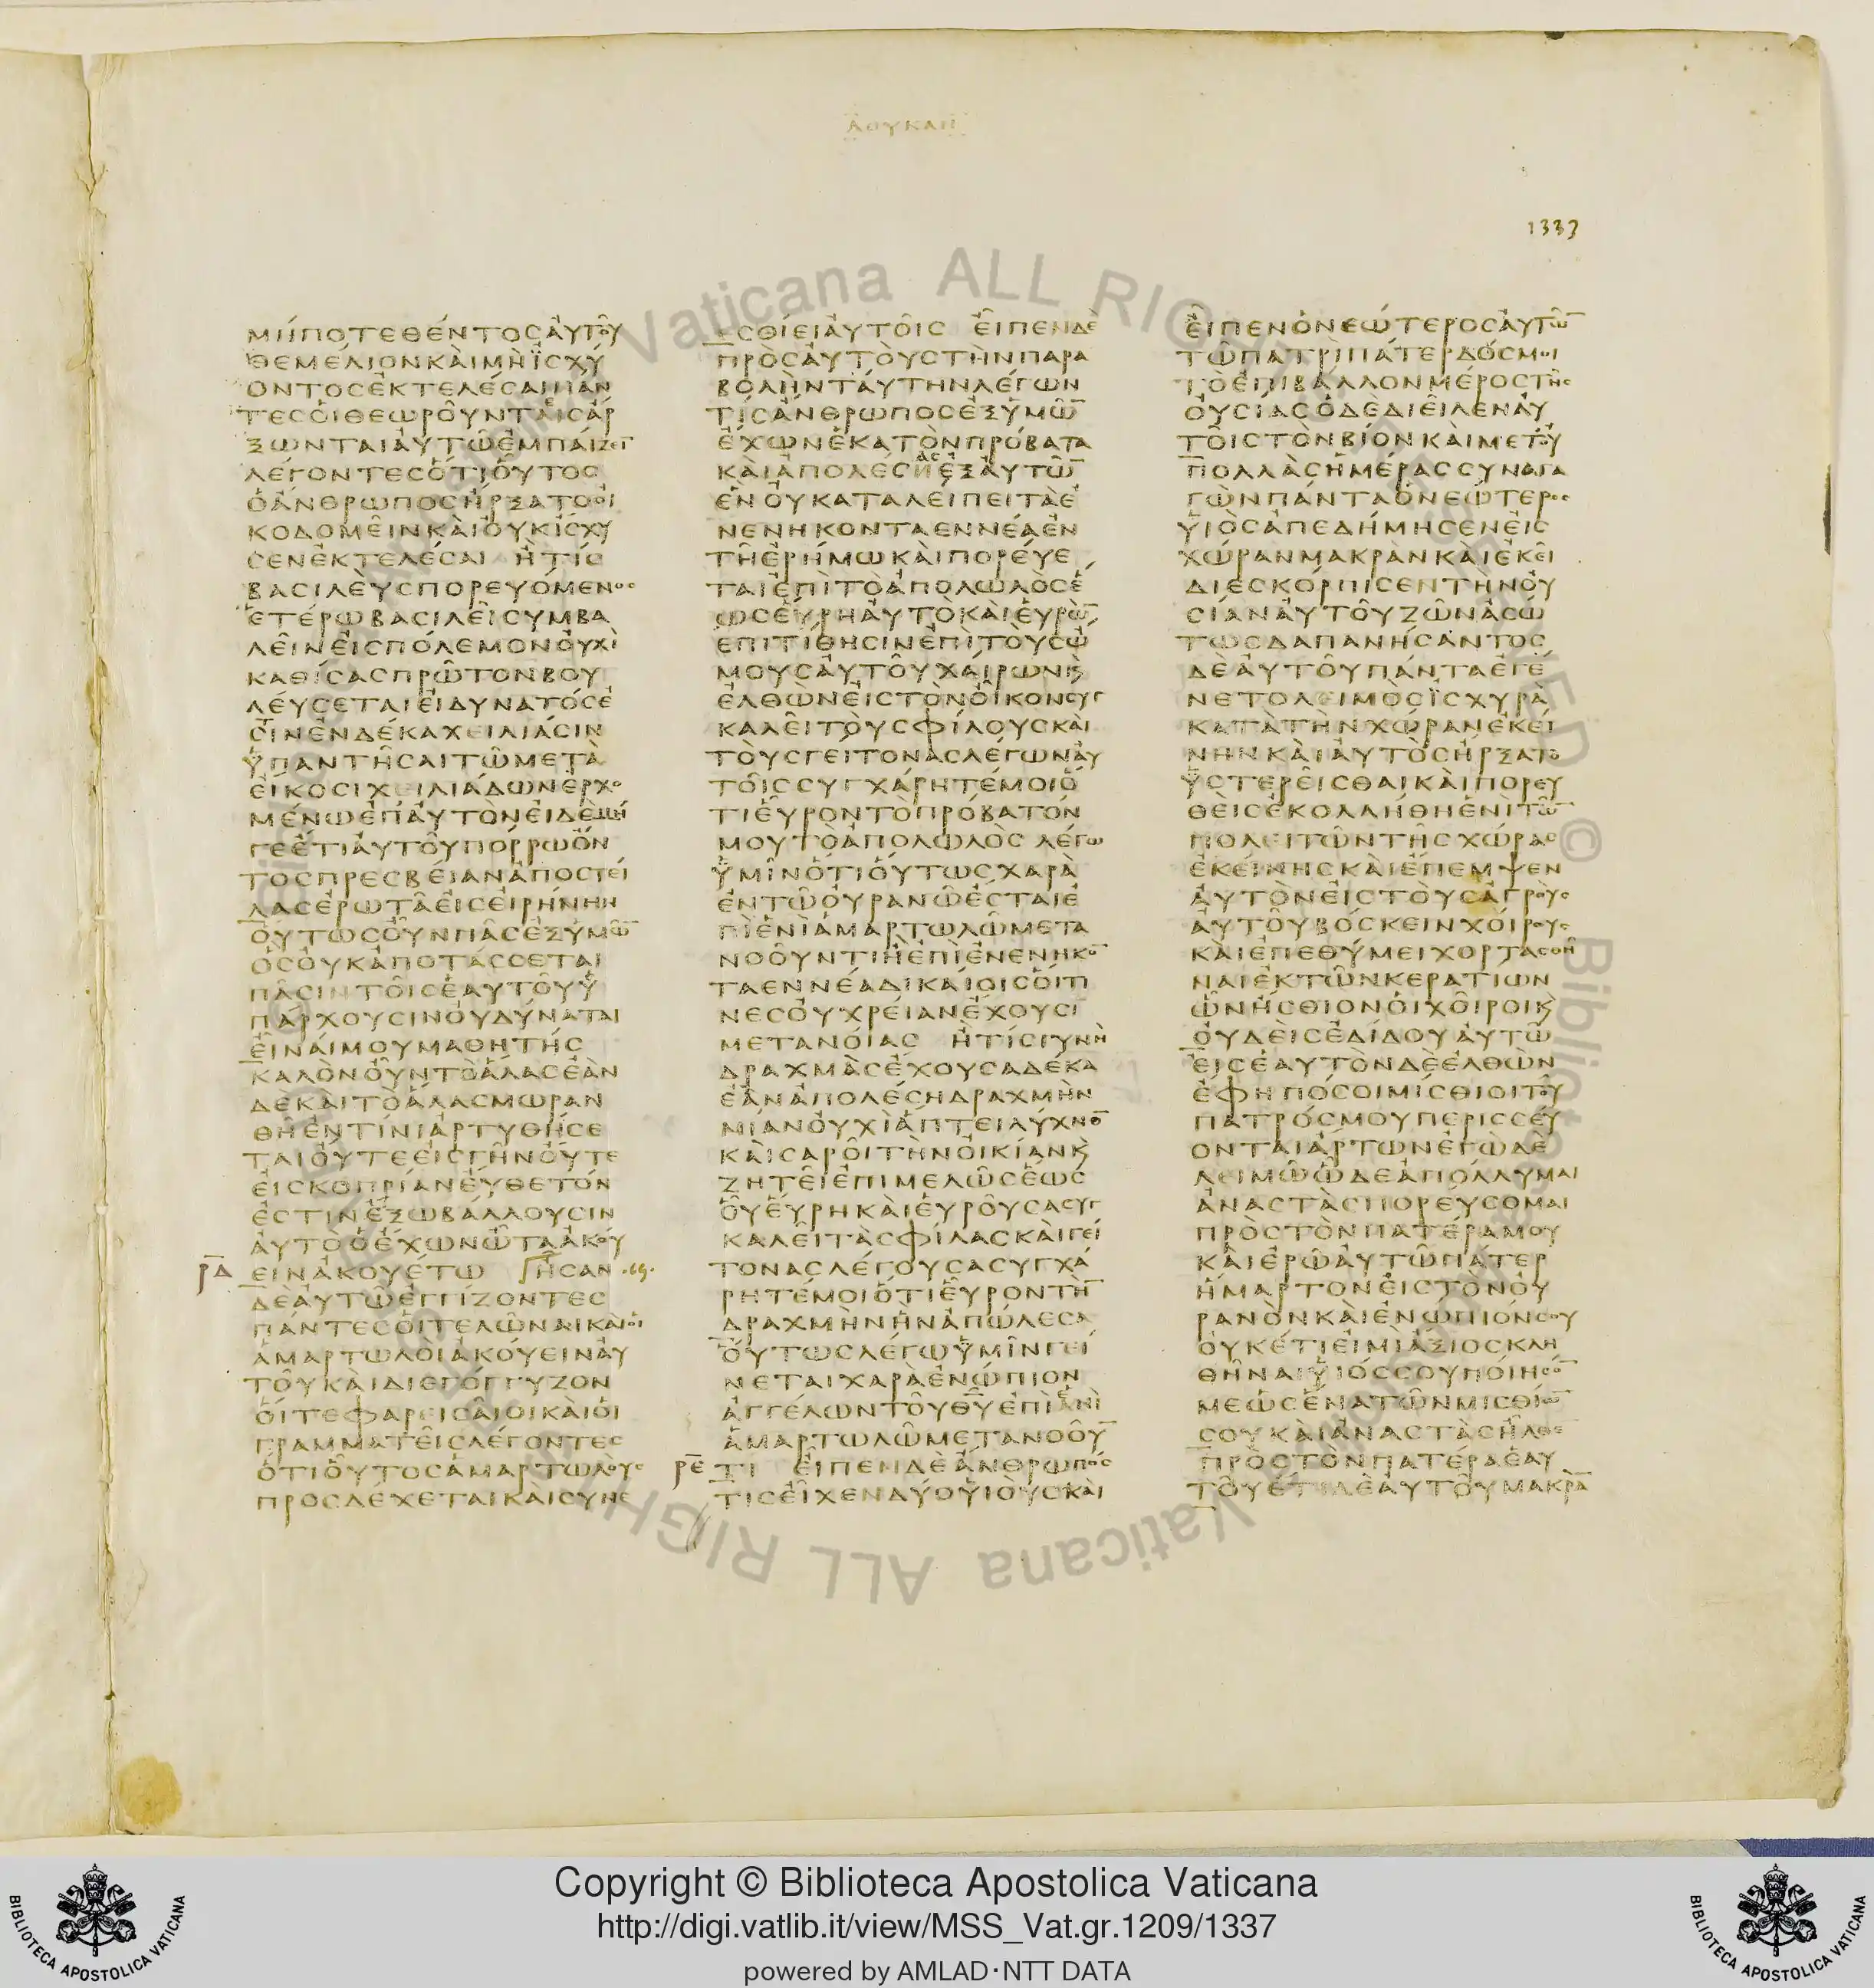 ΛΟΥΚΑΝ
1337
ΜΗΠΟΤΕΘΕΝΤΟΣΑΥΤΟΥ
ΘΕΜΕΛΙΟΝΚΑΙΜΗΪΣΧΥ
ΟΝΤΟΣΕΚΤΕΛΕΣΑΙΠΑΝ
ΤΕΣΟΙΘΕΩΡΟΥΝΤΑΙΣΑΡ
ΞΩΝΤΑΙΑΥΤΩΕΜΠΑΙΖΕΙ
ΛΕΓΟΝΤΕΣΟΤΙΟΥΤΟΣ
ΟΑΝΘΡΩΠΟΣΗΡΞΑΤΟΟΙ
ΚΟΔΟΜΕΙΝΚΑΙΟΥΚΙΣΧΥ
ΣΕΝΕΚΤΕΛΕΣΑΙ ΗΤΙΣ
ΒΑΣΙΛΕΥΣΠΟΡΕΥΟΜΕΝΟΣ
ΕΤΕΡΩΒΑΣΙΛΕΙΣΥΜΒΑ
ΛΕΙΝΕΙΣΠΟΛΕΜΟΝΟΥΧΙ
ΚΑΘΙΣΑΣΠΡΩΤΟΝΒΟΥ
ΛΕΥΣΕΤΑΙΕΙΔΥΝΑΤΟΣΕ
ΣΤΙΝΕΝΔΕΚΑΧΕΙΛΙΑΣΙΝ
ΥΠΑΝΤΗΣΑΙΤΩΜΕΤΑ
ΕΙΚΟΣΙΧΕΙΛΙΑΔΩΝΕΡΧΟ
ΜΕΝΩΕΠΑΥΤΟΝΕΙΔΕΜΗ
ΓΕΕΤΙΑΥΤΟΥΠΟΡΡΩΟΝ
ΤΟΣΠΡΕΣΒΕΙΑΝΑΠΟΣΤΕΙ
ΛΑΣΕΡΩΤΑΕΙΣΕΙΡΗΝΗΝ
ΟΥΤΩΣΟΥΝΠΑΣΕΞΥΜΩ̅
ΟΣΟΥΚΑΠΟΤΑΣΣΕΤΑΙ
ΠΑΣΙΝΤΟΙΣΕΑΥΤΟΥΥ
ΠΑΡΧΟΥΣΙΝΟΥΔΥΝΑΤΑΙ
ΕΙΝΑΙΜΟΥΜΑΘΗΤΗΣ
ΚΑΛΟΝΟΥΝΤΟΑΛΑΣΕΑΝ
ΔΕΚΑΙΤΟΑΛΑΣΜΩΡΑΝ
ΘΗΕΝΤΙΝΙΑΡΤΥΘΗΣΕ
ΤΑΙΟΥΤΕΕΙΣΓΗΝΟΥΤΕ
ΕΙΣΚΟΠΡΙΑΝΕΥΘΕΤΟΝ
ΕΣΤΙΝΕΞΩΒΑΛΛΟΥΣΙΝ
ΑΥΤΟΟΕΧΩΝΩΤΑΑΚΟΥ
ΡΔ̅ ΕΙΝΑΚΟΥΕΤΩ ΗΣΑΝ
ΔΕΑΥΤΩΕΓΓΙΖΟΝΤΕΣ
ΠΑΝΤΕΣΟΙΤΕΛΩΝΑΙΚΑΙΟΙ
ΑΜΑΡΤΩΛΟΙΑΚΟΥΕΙΝΑΥ
ΤΟΥΚΑΙΔΙΕΓΟΓΓΥΖΟΝ
ΟΙΤΕΦΑΡΕΙΣΑΙΟΙΚΑΙΟΙ
ΓΡΑΜΜΑΤΕΙΣΛΕΓΟΝΤΕΣ
ΟΤΙΟΥΤΟΣΑΜΑΡΤΩΛΟΥΣ
ΠΡΟΣΔΕΧΕΤΑΙΚΑΙΣΥΝΕ
ΣΘΙΕΙΑΥΤΟΙΣ ΕΙΠΕΝΔΕ
ΠΡΟΣΑΥΤΟΥΣΤΗΝΠΑΡΑ
ΒΟΛΗΝΤΑΥΤΗΝΛΕΓΩΝ
ΤΙΣΑΝΘΡΩΠΟΣΕΞΥΜΩ̅
ΕΧΩΝΕΚΑΤΟΝΠΡΟΒΑΤΑ
ΚΑΙΑΠΟΛΕΣΗΕΞΑΥΤΩ̅
ΕΝΟΥΚΑΤΑΛΕΙΠΕΙΤΑΕ
ΝΕΝΗΚΟΝΤΑΕΝΝΕΑΕΝ
ΤΗΕΡΗΜΩΚΑΙΠΟΡΕΥΕ
ΤΑΙΕΠΙΤΟΑΠΟΛΩΛΟΣΕ
ΩΣΕΥΡΗΑΥΤΟΚΑΙΕΥΡΩ̅
ΕΠΙΤΙΘΗΣΙΝΕΠΙΤΟΥΣΩ
ΜΟΥΣΑΥΤΟΥΧΑΙΡΩΝϗ
ΕΛΘΩΝΕΙΣΤΟΝΟΙΚΟΝΣΥΓ
ΚΑΛΕΙΤΟΥΣΦΙΛΟΥΣΚΑΙ
ΤΟΥΣΓΕΙΤΟΝΑΣΛΕΓΩΝΑΥ
ΤΟΙΣΣΥΓΧΑΡΗΤΕΜΟΙΟ
ΤΙΕΥΡΟΝΤΟΠΡΟΒΑΤΟΝ
ΜΟΥΤΟΑΠΟΛΩΛΟΣ ΛΕΓΩ
ΥΜΙΝΟΤΙΟΥΤΩΣΧΑΡΑ
ΕΝΤΩΟΥΡΑΝΩΕΣΤΑΙΕ
ΠΙΕΝΙΑΜΑΡΤΩΛΩΜΕΤΑ
ΝΟΟΥΝΤΙΗΕΠΙΕΝΕΝΗΚΟ̅
ΤΑΕΝΝΕΑΔΙΚΑΙΟΙΣΟΙΤΙ
ΝΕΣΟΥΧΡΕΙΑΝΕΧΟΥΣΙ
ΜΕΤΑΝΟΙΑΣ ΗΤΙΣΓΥΝΗ
ΔΡΑΧΜΑΣΕΧΟΥΣΑΔΕΚΑ
ΕΑΝΑΠΟΛΕΣΗΔΡΑΧΜΗΝ
ΜΙΑΝΟΥΧΙΑΠΤΕΙΛΥΧΝΟ̅
ΚΑΙΣΑΡΟΙΤΗΝΟΙΚΙΑΝϗ
ΖΗΤΕΙΕΠΙΜΕΛΩΣΕΩΣ
ΟΥΕΥΡΗΚΑΙΕΥΡΟΥΣΑΣΥΓ
ΚΑΛΕΙΤΑΣΦΙΛΑΣΚΑΙΓΕΙ
ΤΟΝΑΣΛΕΓΟΥΣΑΣΥΓΧΑ
ΡΗΤΕΜΟΙΟΤΙΕΥΡΟΝΤΗ̅
ΔΡΑΧΜΗΝΗΝΑΠΩΛΕΣΑ
ΟΥΤΩΣΛΕΓΩΥΜΙΝΓΕΙ
ΝΕΤΑΙΧΑΡΑΕΝΩΠΙΟΝ
ΑΓΓΕΛΩΝΤΟΥΘΥ̅ΕΠΙΕΝΙ
ΑΜΑΡΤΩΛΩΜΕΤΑΝΟΟΥ̅
ΡΕ̅ ΤΙ ΕΙΠΕΝΔΕΑΝΘΡΩΠΟΣ
ΤΙΣΕΙΧΕΝΔΥΟΥΙΟΥΣΚΑΙ
ΕΙΠΕΝΟΝΕΩΤΕΡΟΣΑΥΤΩ̅
ΤΩΠΑΤΡΙΠΑΤΕΡΔΟΣΜΟΙ
ΤΟΕΠΙΒΑΛΛΟΝΜΕΡΟΣΤΗΣ
ΟΥΣΙΑΣΟΔΕΔΙΕΙΛΕΝΑΥ
ΤΟΙΣΤΟΝΒΙΟΝΚΑΙΜΕΤΟΥ
ΠΟΛΛΑΣΗΜΕΡΑΣΣΥΝΑΓΑ
ΓΩΝΠΑΝΤΑΟΝΕΩΤΕΡΟΣ
ΥΙΟΣΑΠΕΔΗΜΗΣΕΝΕΙΣ
ΧΩΡΑΝΜΑΚΡΑΝΚΑΙΕΚΕΙ
ΔΙΕΣΚΟΡΠΙΣΕΝΤΗΝΟΥ
ΣΙΑΝΑΥΤΟΥΖΩΝΑΣΩ
ΤΩΣΔΑΠΑΝΗΣΑΝΤΟΣ
ΔΕΑΥΤΟΥΠΑΝΤΑΕΓΕ
ΝΕΤΟΛΕΙΜΟΣΪΣΧΥΡΑ
ΚΑΤΑΤΗΝΧΩΡΑΝΕΚΕΙ
ΝΗΝΚΑΙΑΥΤΟΣΗΡΞΑΤΟ
ΥΣΤΕΡΕΙΣΘΑΙΚΑΙΠΟΡΕΥ
ΘΕΙΣΕΚΟΛΛΗΘΗΕΝΙΤΩ̅
ΠΟΛΕΙΤΩΝΤΗΣΧΩΡΑΣ
ΕΚΕΙΝΗΣΚΑΙΕΠΕΜΨΕΝ
ΑΥΤΟΝΕΙΣΤΟΥΣΑΓΡΟΥΣ
ΑΥΤΟΥΒΟΣΚΕΙΝΧΟΙΡΟΥΣ
ΚΑΙΕΠΕΘΥΜΕΙΧΟΡΤΑΣΘΗ
ΝΑΙΕΚΤΩΝΚΕΡΑΤΙΩΝ
ΩΝΗΣΘΙΟΝΟΙΧΟΙΡΟΙϗ
ΟΥΔΕΙΣΕΔΙΔΟΥΑΥΤΩ
ΕΙΣΕΑΥΤΟΝΔΕΕΛΘΩΝ
ΕΦΗΠΟΣΟΙΜΙΣΘΙΟΙΤΟΥ
ΠΑΤΡΟΣΜΟΥΠΕΡΙΣΣΕΥ
ΟΝΤΑΙΑΡΤΩΝΕΓΩΔΕ
ΛΕΙΜΩΩΔΕΑΠΟΛΛΥΜΑΙ
ΑΝΑΣΤΑΣΠΟΡΕΥΣΟΜΑΙ
ΠΡΟΣΤΟΝΠΑΤΕΡΑΜΟΥ
ΚΑΙΕΡΩΑΥΤΩΠΑΤΕΡ
ΗΜΑΡΤΟΝΕΙΣΤΟΝΟΥ
ΡΑΝΟΝΚΑΙΕΝΩΠΙΟΝΣΟΥ
ΟΥΚΕΤΙΕΙΜΙΑΞΙΟΣΚΛΗ
ΘΗΝΑΙΥΙΟΣΣΟΥΠΟΙΗΣΟ̅
ΜΕΩΣΕΝΑΤΩΝΜΙΣΘΙΩ̅
ΣΟΥΚΑΙΑΝΑΣΤΑΣΗΛΘΕ
ΠΡΟΣΤΟΝΠΑΤΕΡΑΕΑΥ
ΤΟΥΕΤΙΔΕΑΥΤΟΥΜΑΚΡΑ̅
Vaticana ALL RIGHTS RESERVED © Biblioteca Vaticana ALL RIGH
Copyright © Biblioteca Apostolica Vaticana
http://digi.vatlib.it/view/MSS_Vat.gr.1209/1337
powered by AMLAD·NTT DATA
BIBLIOTECA APOSTOLICA VATICANA
BIBLIOTECA APOSTOLICA VATICANA